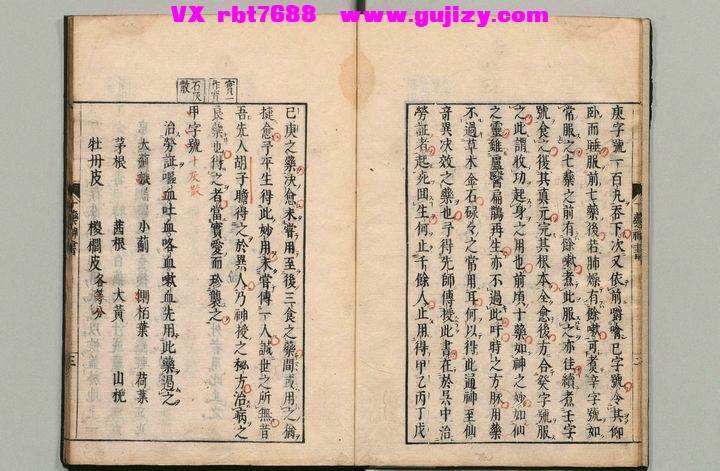 VX rbt7688 www.gujizy.com
庚字號一百丸吞下次又依前嚼噙巳字號令其仰
卧而睡服前七藥後若肺燥有餘嗽可煑辛字號如
常服之七藥之前有餘嗽煮此服之亦佳續煮壬字
號食之後其真元完其根本全愈後方合癸字號服
之此謂收功起身之用也前項十藥如神之妙如仙
之靈雖盧醫扁鵲再生亦不過此吁時之方脉用藥
不過草木金石碌々之常用耳何以得此通神至仙
竒異决效之藥也予得先師傳授此書在於吳中治
勞証者起死囬生何止千餘人止用得甲乙丙丁戊
已庚之藥決愈未嘗用至後三食之藥間或用之偹
捷愈予平生得此妙用未嘗傳一人誠世之所無昔
吾先人胡子瞻得之於異人乃神授之秘方治病之
良藥也得之者當寳愛而珍襲之
寳一作實
石灰散
甲字號 十灰散
治勞証嘔血吐血咯血嗽血先用此藥遏之
大薊 小薊 側栢葉 荷葉
茅根 茜根 大黃 山梔
牡丹皮 椶櫚皮各等分
三